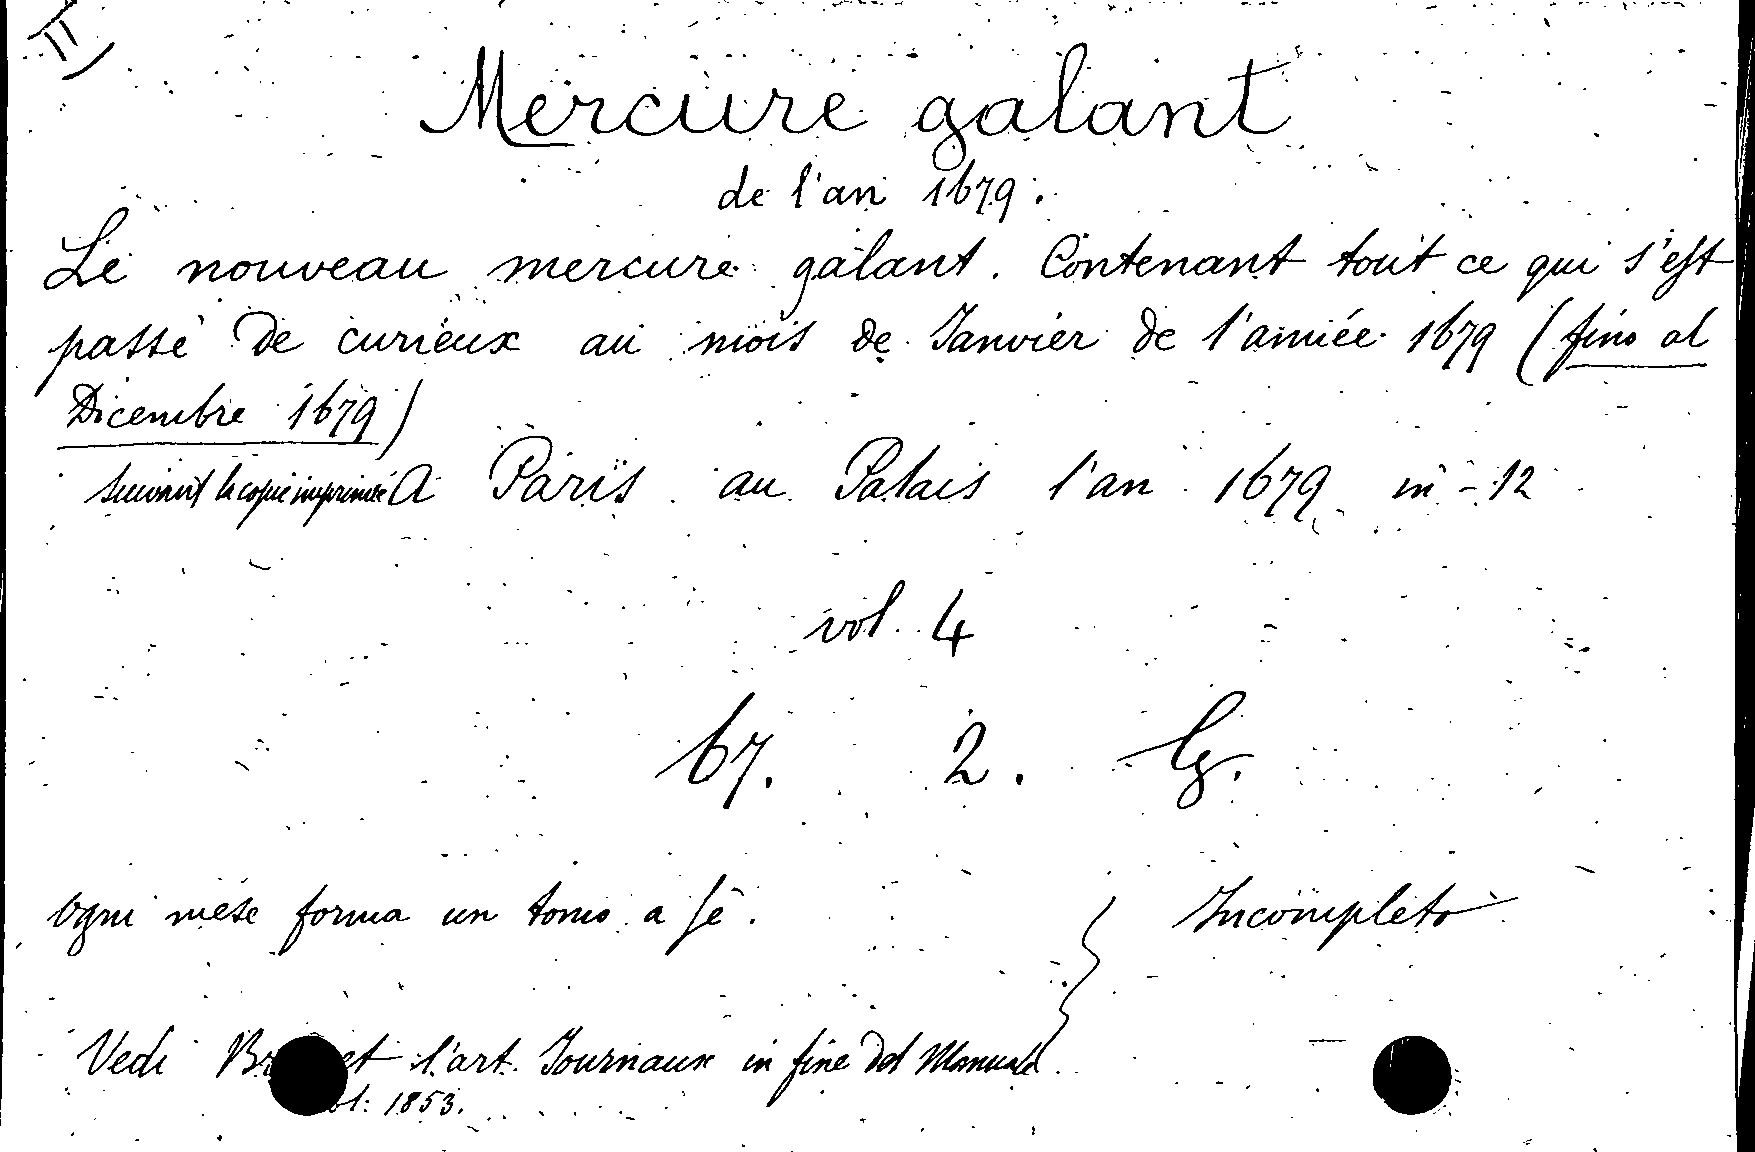 II)
Mercure galant
de l'an 1679.
Le nouveau mercure galant. Contenant tout ce qui s'est
passé de curieux au mois de Janvier de l'année 1679 (fino al
Dicembre 1679)
suivant la copie imprimée A Paris au Palais l'an 1679 in-12
vol. 4
67. 2. G.
Ogni mese forma un tomo a sé.
Incompleto
Vedi l'art. Journaux in fine del Manuale
1853.